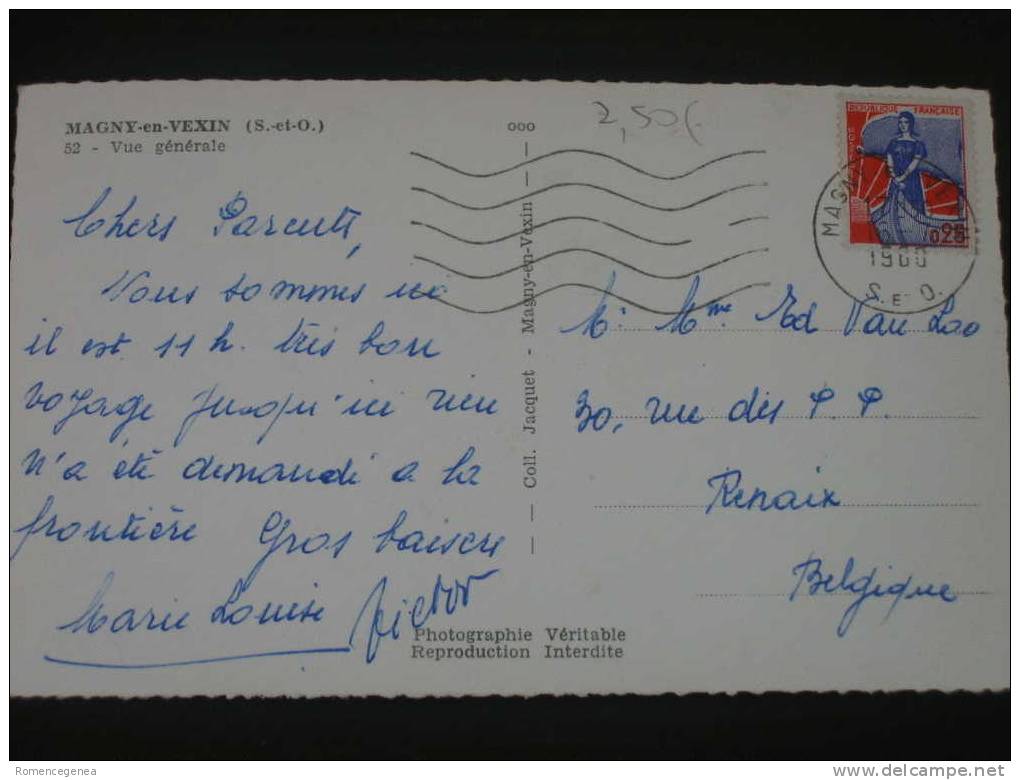 MAGNY-en-VEXIN (S.-et-O.)
52 - Vue générale
Chers Parents,
Nous sommes ici
il est 11 h. très bon
voyage jusqu'ici rien
n'a été demandé a la
frontière Gros baisers
Marie Louise Victor
Photographie Véritable
Reproduction Interdite
ooo
Coll. Jacquet - Magny-en-Vexin
2,50
REPUBLIQUE FRANÇAISE
0,25
MAGNY
S. ET O.
Mr Mme Ed Van Loo
30, rue des P. P.
Renaix
Belgique
Romencegenea
www.delcampe.net